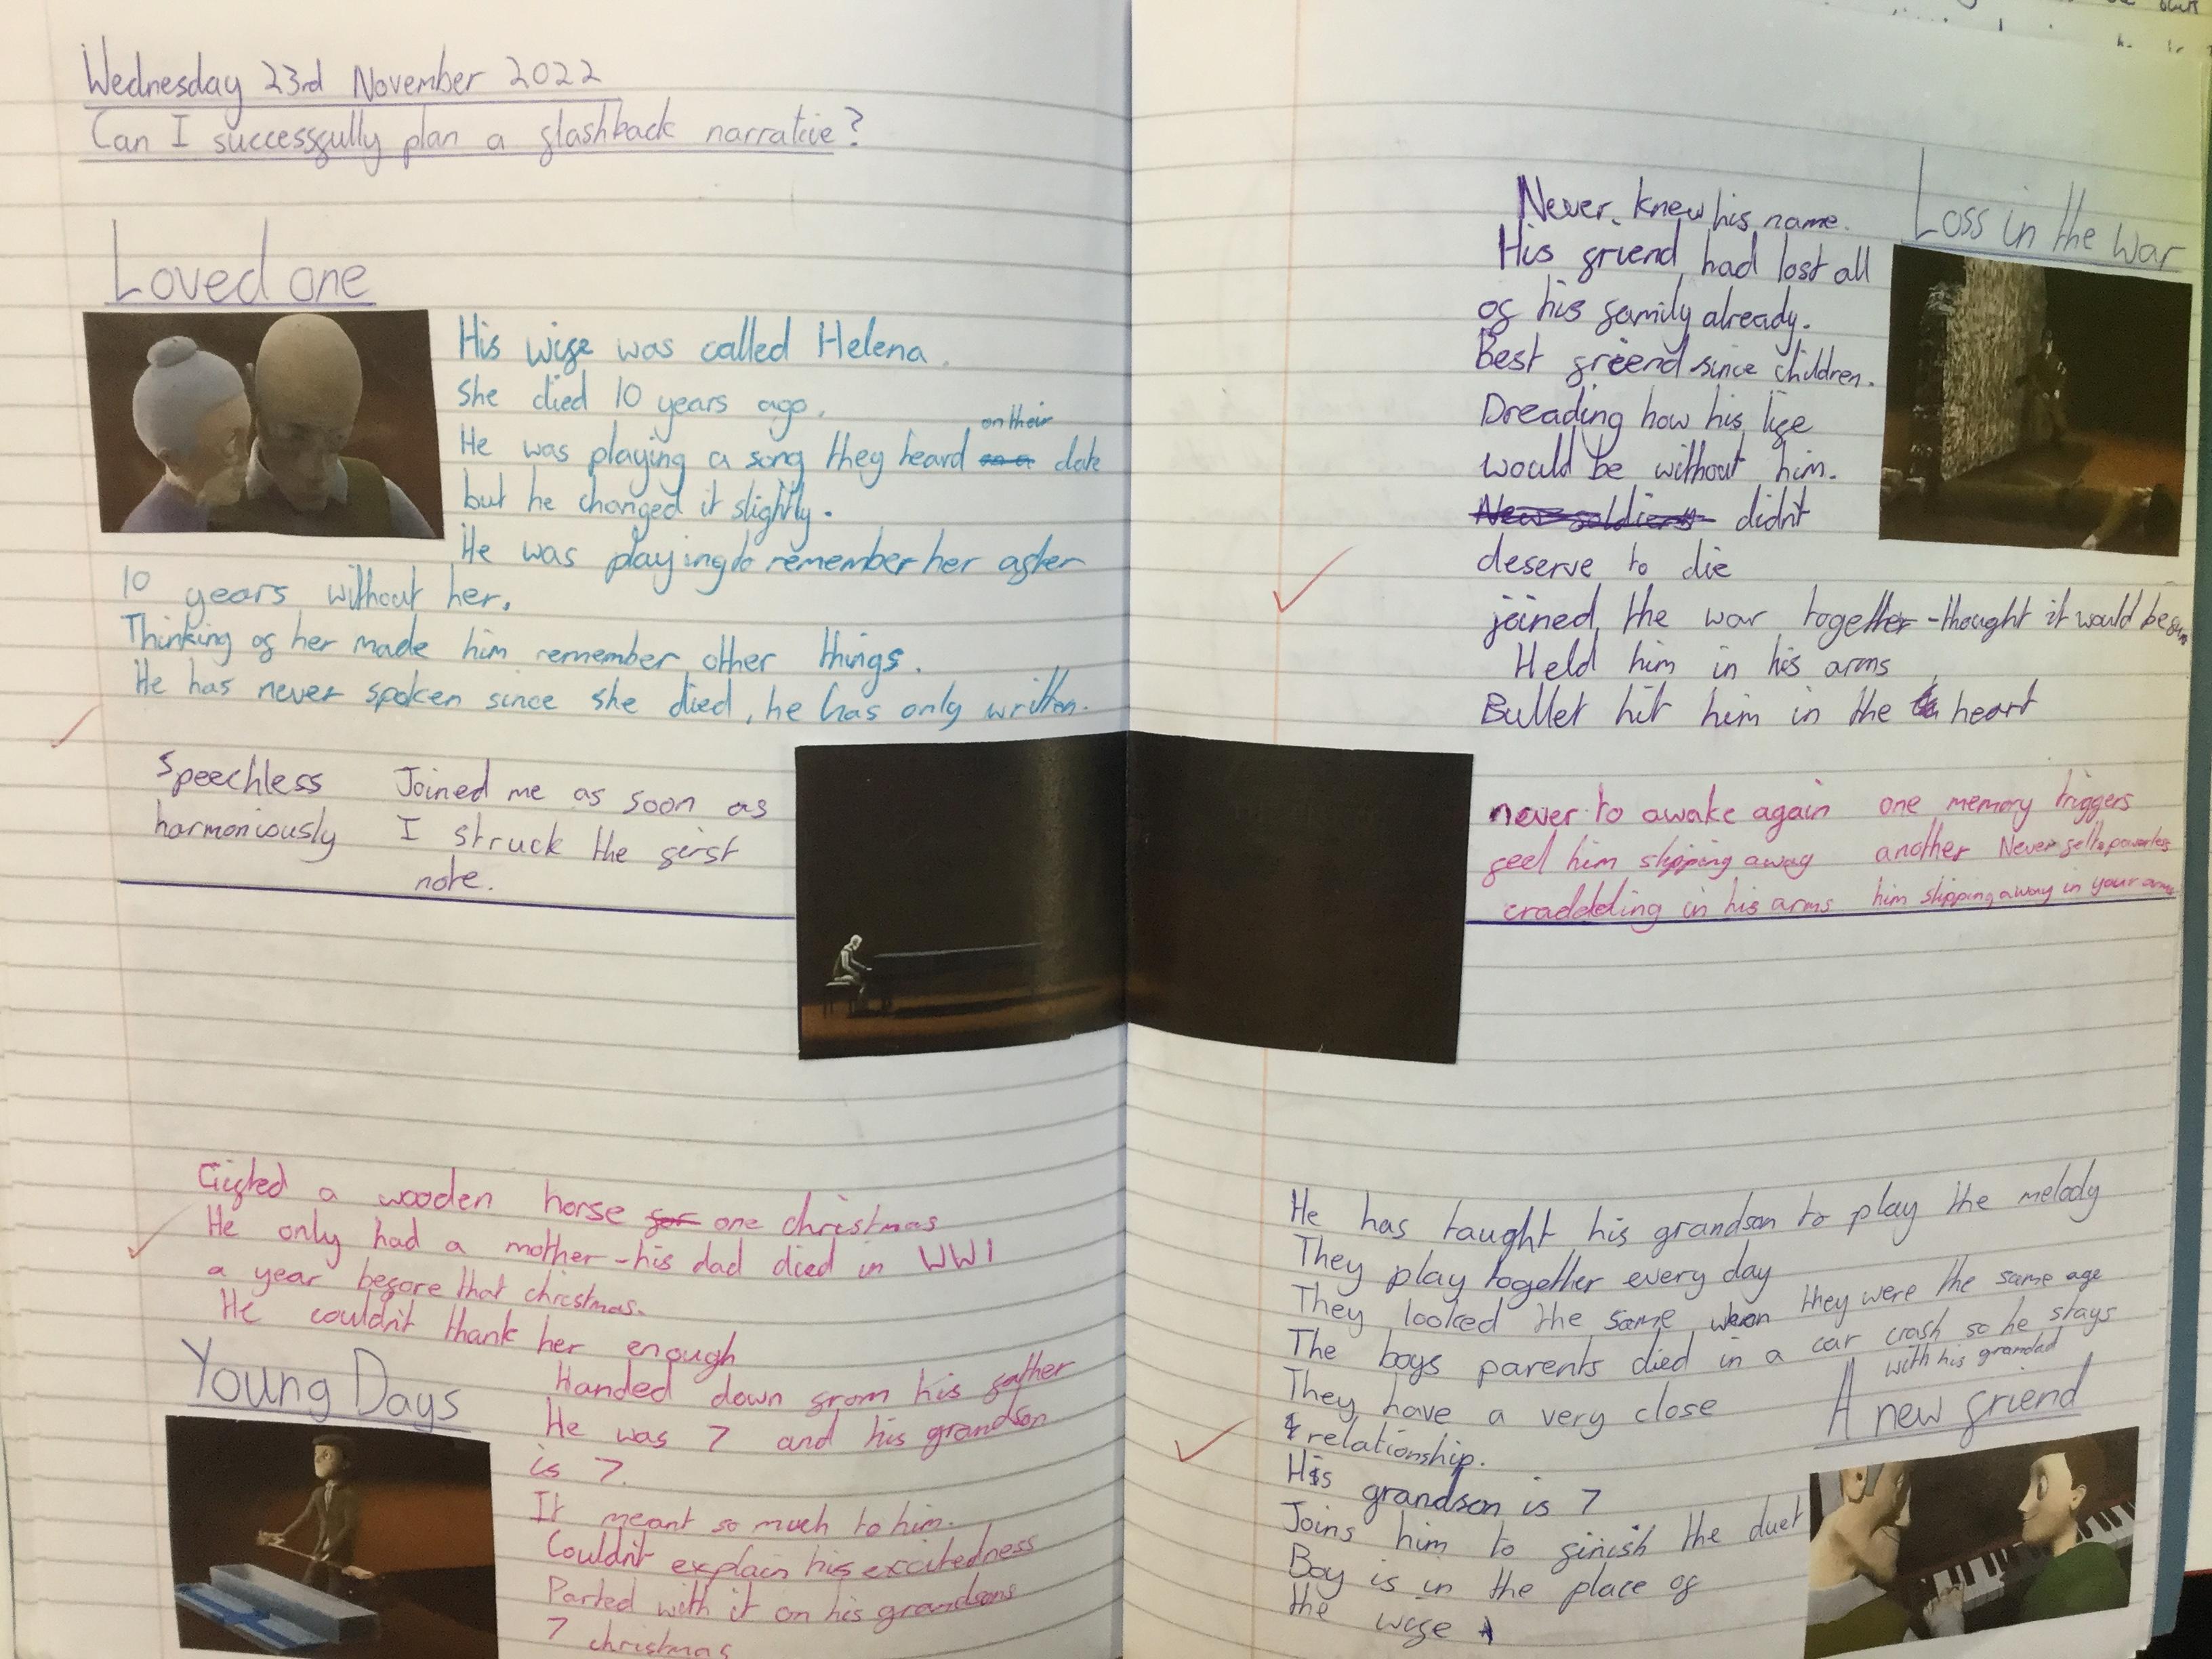 Wednesday 23rd November 2022
Can I successfully plan a flashback narrative?
Loved one
His wife was called Helena.
She died 10 years ago.
He was playing a song they heard on their date
but he changed it slightly.
He was playing to remember her after
10 years without her.
Thinking of her made him remember other things.
He has never spoken since she died, he has only written.
Speechless
harmoniously
Joined me as soon as
I struck the first
note.
Gifted a wooden horse one christmas
He only had a mother - his dad died in WW1
a year before that christmas.
He couldn't thank her enough
Young Days
Handed down from his father
He was 7 and his grandson
is 7.
It meant so much to him.
Couldn't explain his excitedness
Parted with it on his grandsons
7 christmas
Loss in the war
Never knew his name.
His friend had lost all
of his family already.
Best freend since children.
Dreading how his life
would be without him.
New soldiers didn't
deserve to die
joined the war together - thought it would be fun
Held him in his arms
Bullet hit him in the heart
never to awake again
feel him slipping away
craddling in his arms
one memory triggers
another Never felt so powerless
him slipping away in your arms
He has taught his grandson to play the melody
They play together every day
They looked the same when they were the same age
The boys parents died in a car crash so he stays
with his grandad
They have a very close
relationship.
His grandson is 7
Joins him to finish the duet
Boy is in the place of
the wife
A new friend